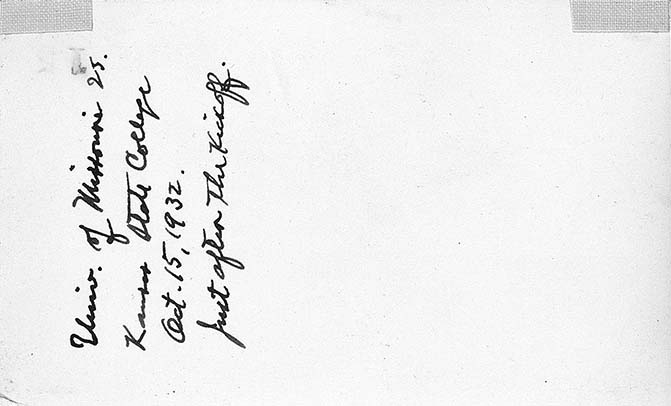 Univ. of Missouri 25.
Kansas State College
Oct. 15, 1932.
Just after the Kickoff.